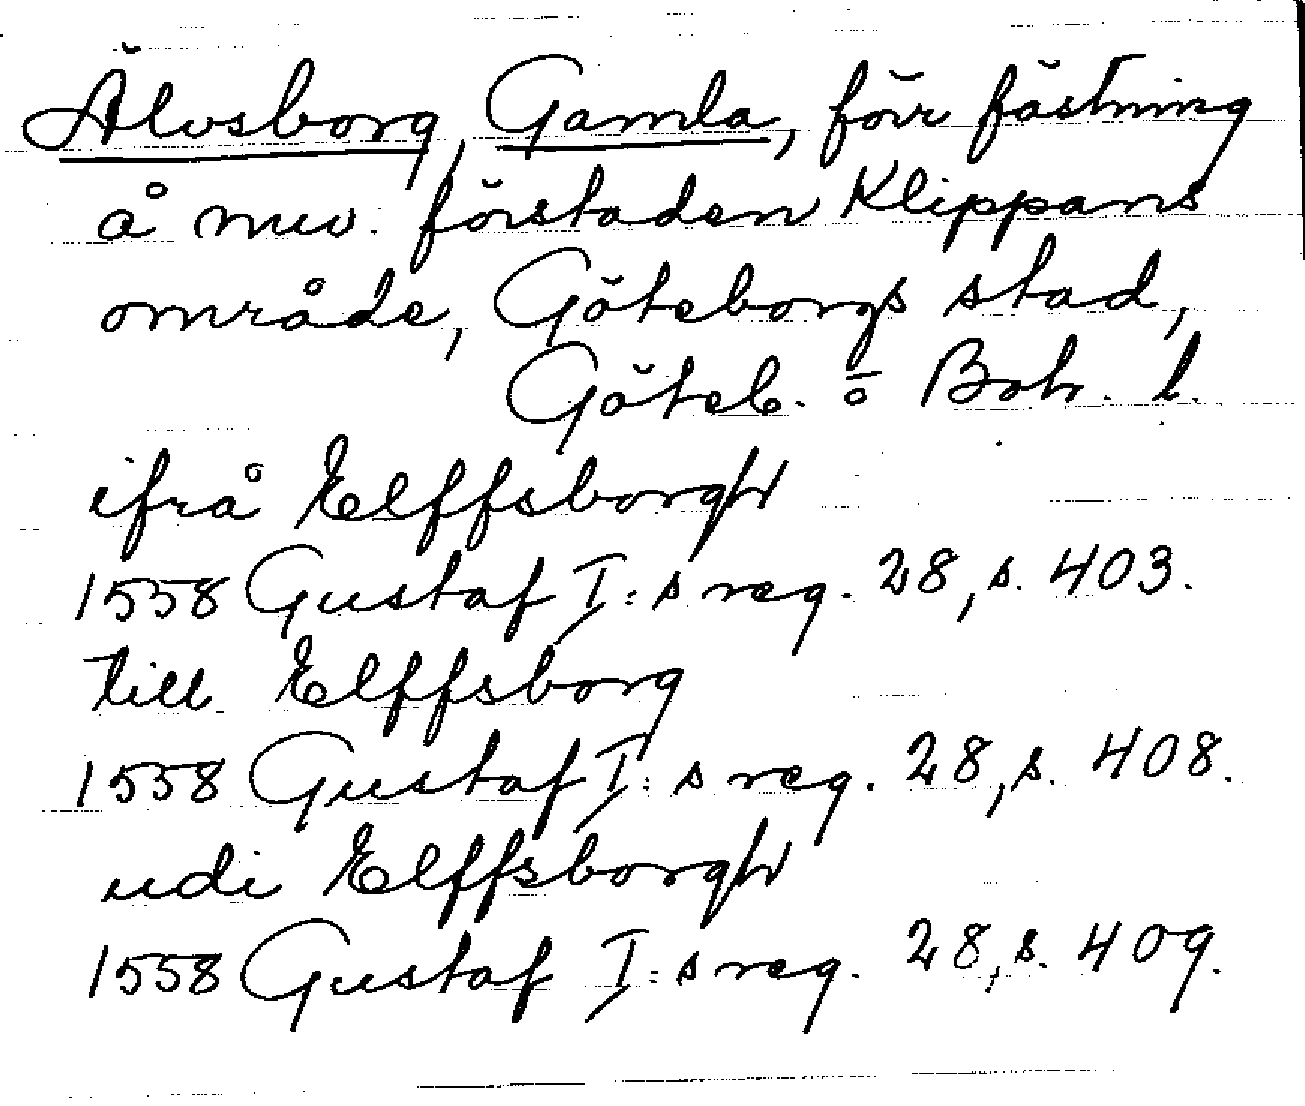 Älvsborg, Gamla, förr fästning
å nuv. förstaden Klippans
område, Göteborgs stad,
Göteb. o Boh. l.
ifrå Elffsborgh
1558 Gustaf I:s reg. 28, s. 403.
till Elffsborg
1558 Gustaf I:s reg. 28, s. 408.
udi Elffsborgh
1558 Gustaf I:s reg. 28, s. 409.